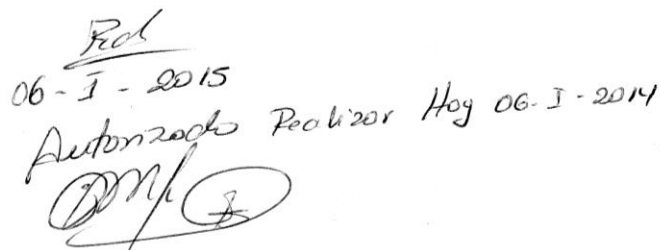 06-I-2015
Autorizado Realizar Hoy 06-I-2014